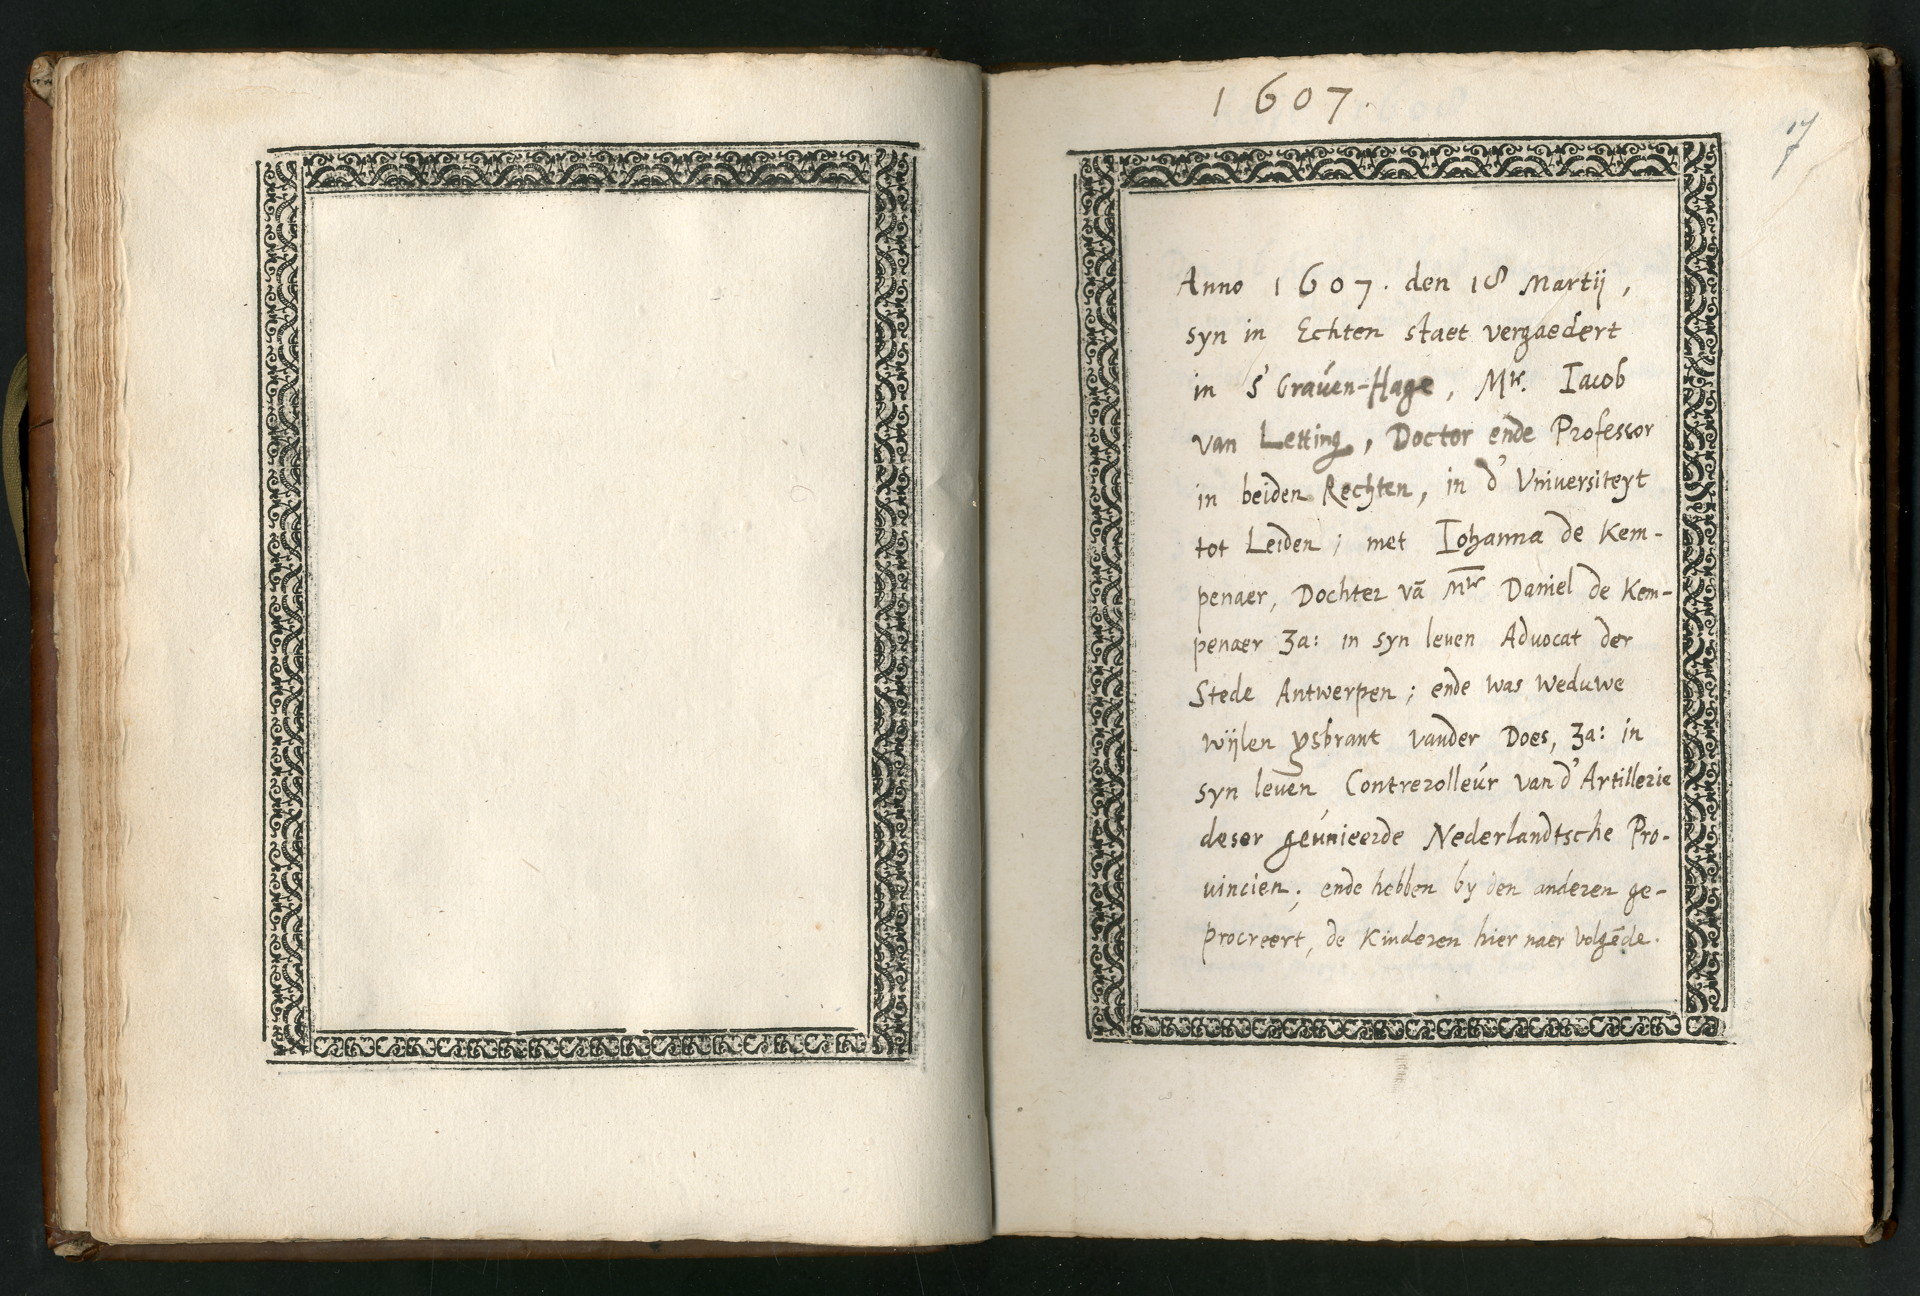 1607.
17
Anno 1607. den 18 Martij,
syn in Echten staet vergaedert
in s' Graven-Hage, Mr. Iacob
van Letting, Doctor ende Professor
in beiden Rechten, in d' Vniversiteyt
tot Leiden; met Iohanna de Kem-
penaer, Dochter vā Mr Daniel de Kem-
penaer Za: in syn leven Advocat der
Stede Antwerpen; ende was weduwe
wijlen ysbrant vander Does, Za: in
syn leven Contrerolleúr van d' Artillerie
deser geúnieerde Nederlandtsche Pro-
uincien; ende hebben by den anderen ge-
procreert, de Kinderen hier naer volgēde.